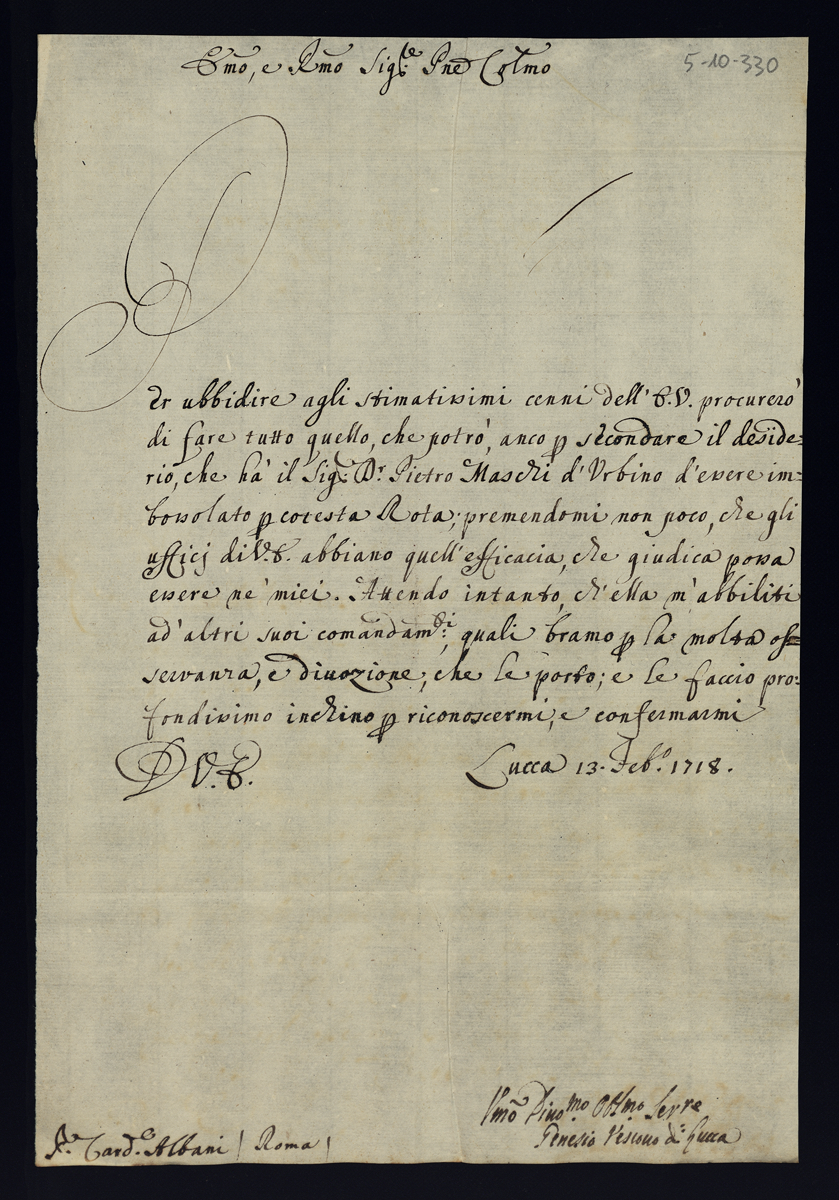 Emo, e Rmo Sig.re Pne Colmo
5-10-330
Per ubbidire agli stimatissimi cenni dell' E.V. procurerò
di fare tutto quello, che potrò, anco p secondare il deside=
rio, che hà il Sig.r Dr. Pietro Maschi d'Urbino d'essere im=
bossolato p cotesta Rota; premendomi non poco, che gli
ufficj di V.E. abbiano quell'efficacia, che giudica possa
essere ne' miei. Attendo intanto, ch'ella m'abbiliti
ad'altri suoi comandam.ti, quali bramo p la molta os=
servanza, e divozione, che le porto; e le faccio pro=
fondissimo inchino p riconoscermi, e confermarmi
D V.E. Lucca 13. Feb.o 1718.
Umo Divo.mo Obl.mo Serre
Genesio Vescovo di Lucca
Sr. Card.e Albani / Roma /